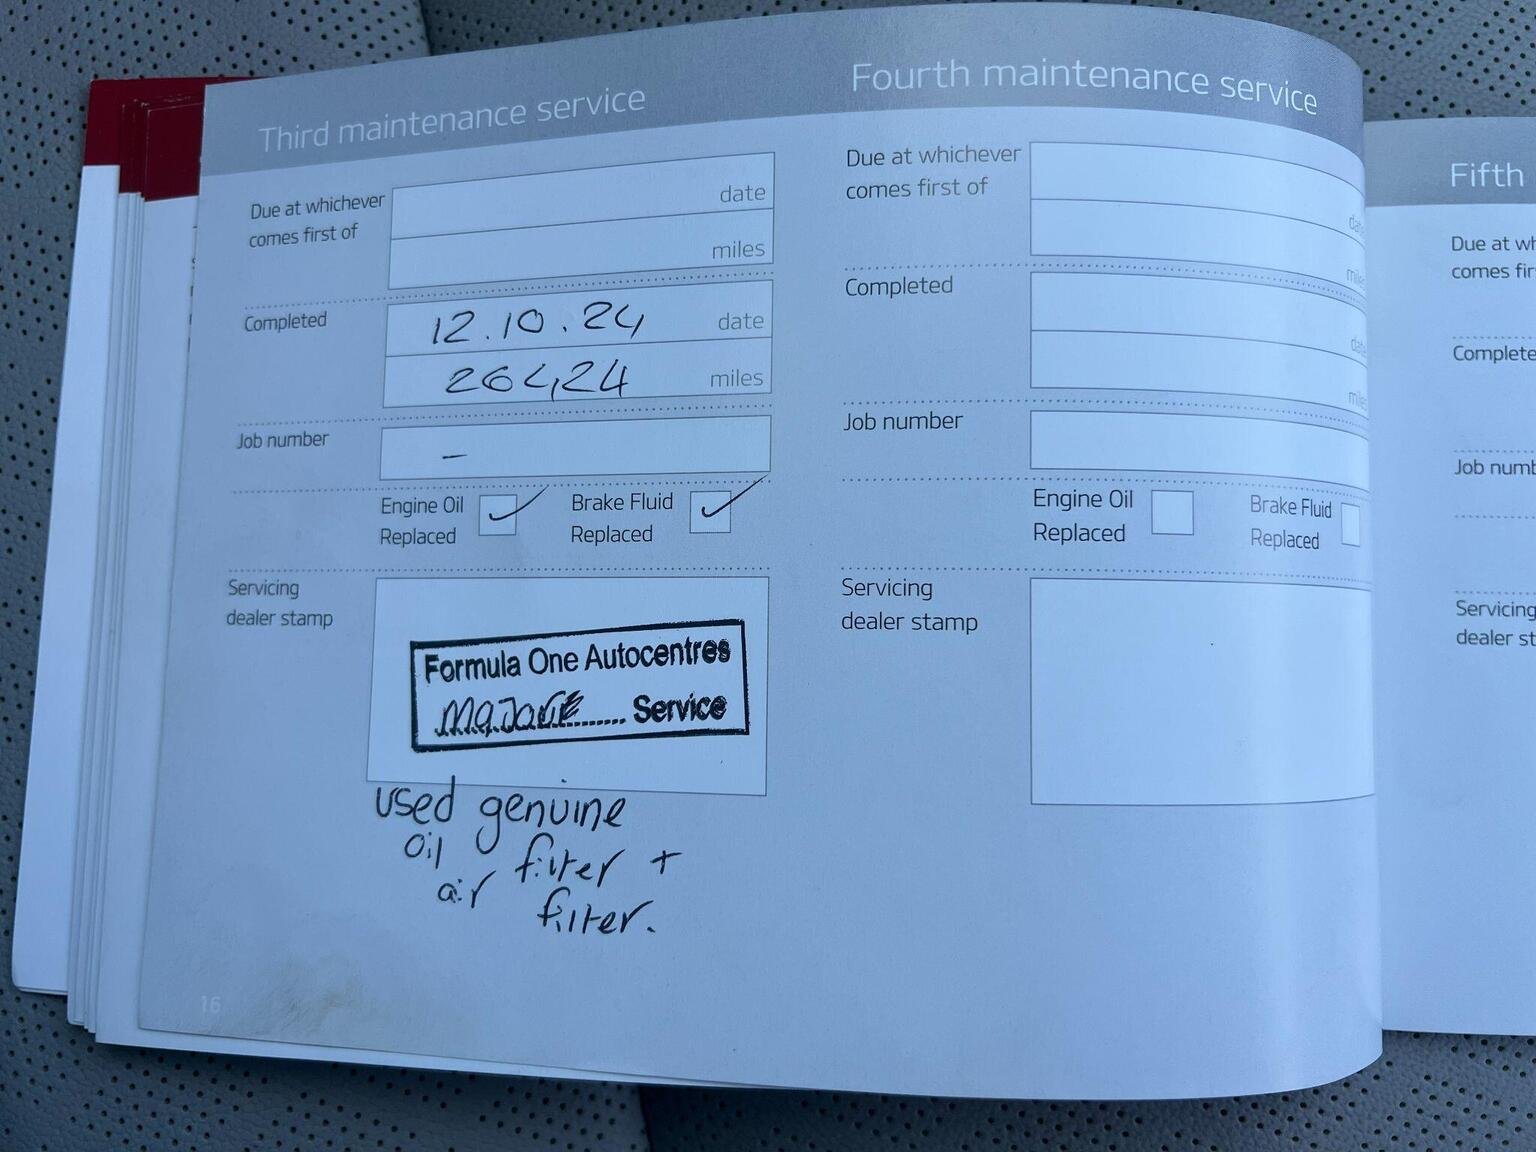 Third maintenance service
Due at whichever
comes first of
date
miles
Completed
12.10.24 date
26424 miles
Job number
–
Engine Oil
Replaced
Brake Fluid
Replaced
Servicing
dealer stamp
Formula One Autocentres
Major ........ Service
used genuine
oil filter +
air filter.
16
Fourth maintenance service
Due at whichever
comes first of
date
miles
Completed
date
miles
Job number
Engine Oil
Replaced
Brake Fluid
Replaced
Servicing
dealer stamp
Fifth
Due at wh
comes fir
Complete
Job numb
Servicing
dealer st